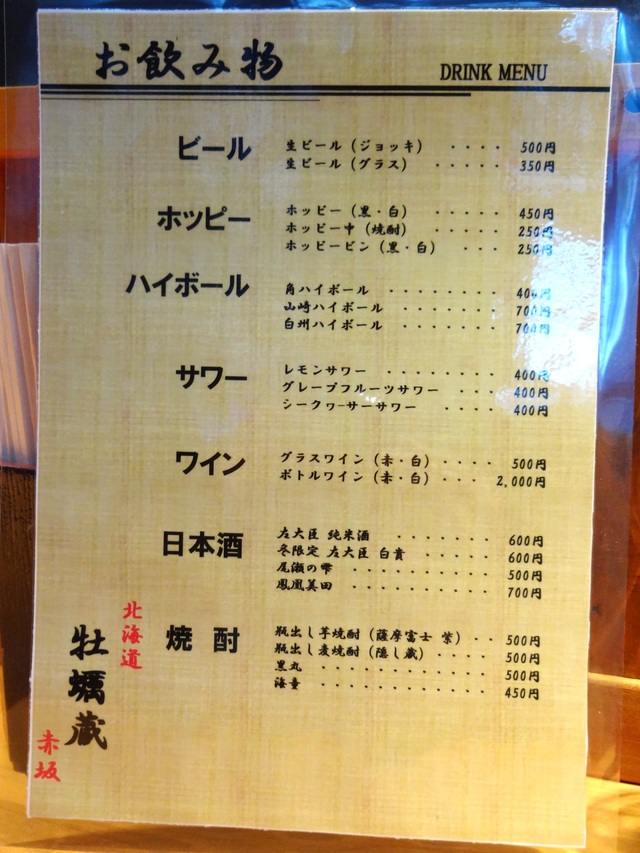 お飲み物
DRINK MENU
ビール
生ビール（ジョッキ）・・・・500円
生ビール（グラス）・・・・・350円
ホッピー
ホッピー（黒・白）・・・・・450円
ホッピー中（焼酎）・・・・・250円
ホッピービン（黒・白）・・・250円
ハイボール
角ハイボール・・・・・・・・400円
山崎ハイボール・・・・・・・700円
白州ハイボール・・・・・・・700円
サワー
レモンサワー・・・・・・・・400円
グレープフルーツサワー・・・400円
シークヮーサーサワー・・・・400円
ワイン
グラスワイン（赤・白）・・・・500円
ボトルワイン（赤・白）・・・2,000円
日本酒
左大臣 純米酒・・・・・・・600円
冬限定 左大臣 白貴・・・・・600円
尾瀬の雫・・・・・・・・・・500円
鳳凰美田・・・・・・・・・・700円
焼酎
瓶出し芋焼酎（薩摩富士 紫）・・500円
瓶出し麦焼酎（隠し蔵）・・・・500円
黒丸・・・・・・・・・・・・500円
海童・・・・・・・・・・・・450円
北海道
牡蠣蔵
赤坂